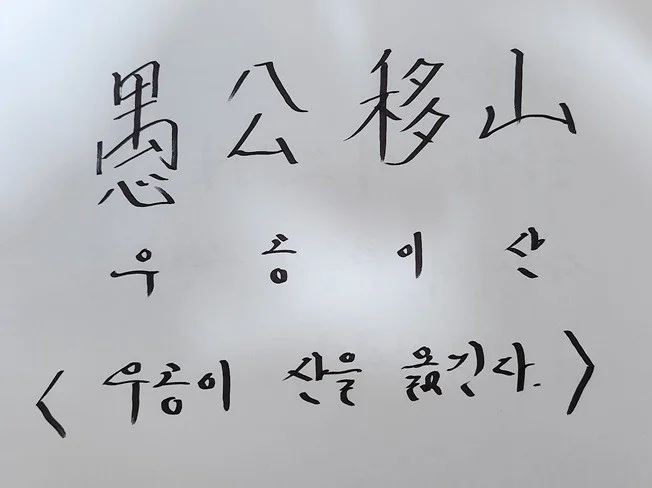 愚公移山
우 공 이 산
< 우공이 산을 옮긴다. >